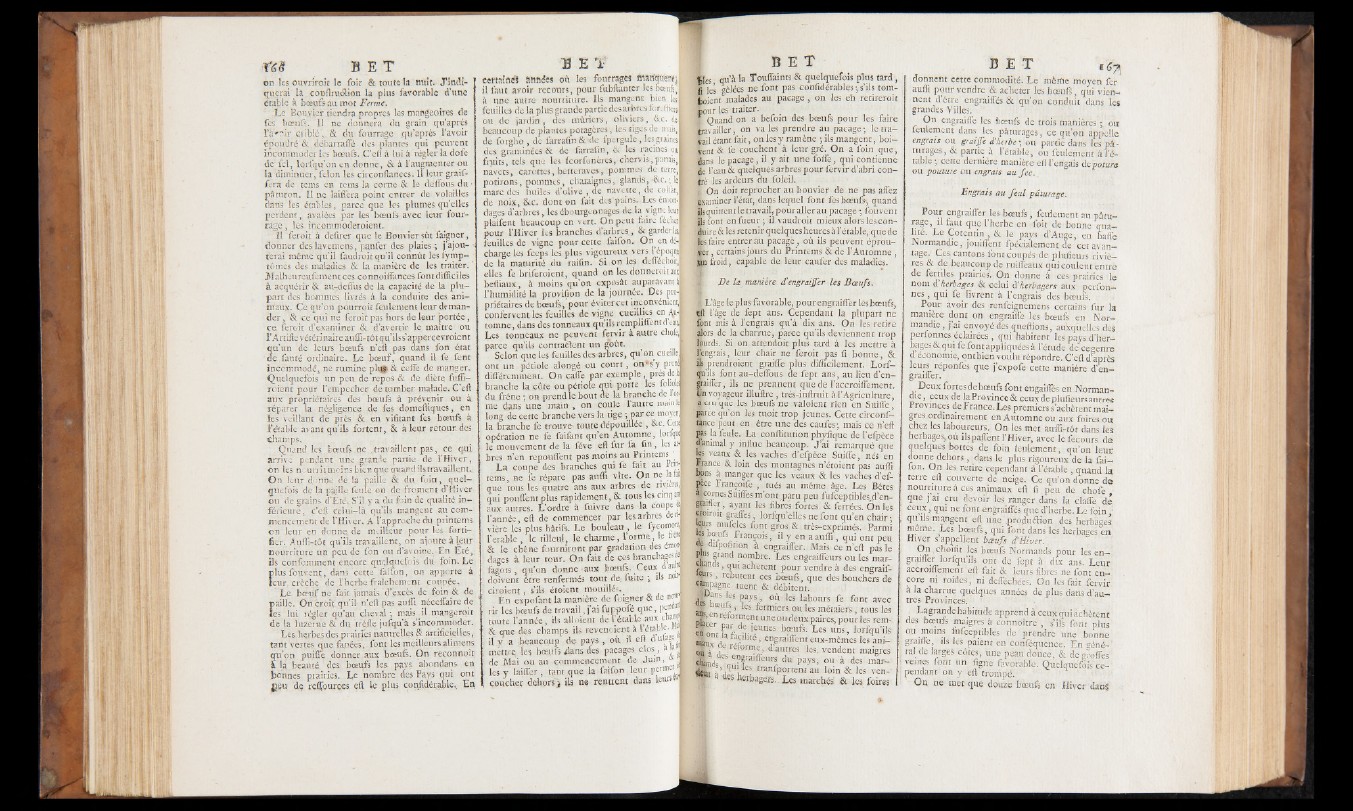 166 BET
on les ouvriroit le soir & toute la nuit. J'indi-
querai la construction la plus favorable d'une
étable à bœufs au mot Ferme.
Le Bouvier tiendra propres les mangeoires de
ses bœufs. Il ne donnera du grain qu'après
l'avoir criblé, & du fourrage qu'après l'avoir
époudré & débarrassé des plantes qui peuvent
incommoder les bœufs. C'est à lui à régler la dose
de sel, lorsqu'on en donne, & à l'augmenter ou
la diminuer, selon les circonstances. Il leur grais-
sera de tems en tems la corne & le dessous du
pâturon. Il ne laissera point entrer de volailles
dans les étables, parce que les plumes qu'elles
perdent, avalées par les bœufs avec leur four-
rage, les incommoderoient.
Il seroit à desirer que le Bouvier sût saigner,
donner des lavemens, panser des plaies; j'ajou-
terai même qu'il faudroit qu'il connût les symp-
tômes des maladies & la manière de les traiter.
Malheureusement ces connoissances sont difficiles
à acquérir & au-dessus de la capacité de la plu-
part des hommes livrés à la conduite des ani-
maux. Ce qu'on pourroit seulement leur deman-
der, & ce qui ne seroit pas hors de leur portée,
ce seroit d'examiner & d'avertir le maître ou
l'Artiste vétérinaire aussi-tôt qu'ils s'appercevroient
qu'un de leurs bœufs n'est pas dans son état
de santé ordinaire. Le bœuf, quand il se sent
incommodé, ne rumine plus & cesse de manger.
Quelquefois un peu de repos & de diète suffi-
roient pour l'empêcher de tomber malade. C'est
aux propriétaires des bœufs à prévenir ou à
réparer la négligence de ses domestiques, en
les veillant de près & en visitant ses bœufs à
l'étable avant qu'ils sortent, & à leur retour des
champs.
Quand les bœufs ne travaillent pas, ce qui
arrive pendant une grande partie de l'Hiver,
on les nourrit moins bien que quand ils travaillent.
On leur donne de la paille & du foin, quel-
quefois de la paille seule ou de froment d'Hiver
ou de grains d'Été. S'il y a du foin de qualité in-
férieure, c'est celui-là qu'ils mangent au com-
mencement de l'Hiver. A l'approche du printems
on leur en donne de meilleur pour les forti-
fier. Aussi-tôt qu'ils travaillent, on ajoute à leur
nourriture un peu de son ou d'avoine. En Été,
ils consomment encore quelquefois du foin. Le
plus souvent, dans cette saison, on apporte à
leur crèche de l'herbe fraîchement coupée.
Le bœuf ne fait jamais d'excès de foin & de
paille. On croit qu'il n'est pas aussi nécessaire de
les lui régler qu'au cheval; mais il mangeroit
de la luzerne & du trèfle jusqu'à s'incommoder.
Les herbes des prairies naturelles & artificielles,
tant vertes que fanées, sont les meilleurs alimens
qu'on puisse donner aux bœufs. On reconnoît
à la beauté des bœufs les pays abondans en
bonnes prairies. Le nombre des Pays qui ont
peu de ressources est le plus considérable. En
BET
certaines années où les fourrages manquent,
il faut avoir recours, pour substanter les bœufs,
à une autre nourriture. Ils mangent bien les
feuilles de la plus grande partie des arbres
ou de jardin, des mûriers, oliviers, &c. de
beaucoup de plantes potagères, les tiges du maïs,
de sorgho, de sarrasin & de spergule, les graines
des graminées & de sarrasin, & les racines ou
fruits, tels que les scorsonères, chervis, panais,
navets, carottes, betteraves, pommes de terre,
potirons, pommes, chataignes, glands, &c.; le
marc des huiles d'olive, de navette, de colsat,
de noix, &c. dont on fait des pains. Les émon-
dages d'arbres, les ébourgeonages de la vigne leur
plaisent beaucoup en vert. On peut faire sécher
pour l'Hiver les branches d'arbres, & garder la
feuilles de vigne pour cette saison. On en dé-
charge les seps les plus vigoureux vers l'époque
de la maturité du raisin. Si on les dessèchoit,
elles se briseroient, quand on les donneroit aux
bestiaux, à moins qu'on exposât auparavant à
l'humidité la provision de la journée. Des pro-
priétaires de bœufs, pour éviter cet inconvénient,
conservent les feuilles de vigne cueillies en Au-
tomne, dans des tonneaux qu'ils remplissent d'eau.
Les tonneaux ne peuvent servir à autre chose,
parce qu'ils contractent un goût.
Selon que les feuilles des arbres, qu'on cueille,
ont un pétiole alongé ou court, on s'y prend
différemment. On casse par exemple, près de la
branche la côte ou pétiole qui porte les folioles
du frêne; on prend le bout de la branche de l'or-
me dans une main, on coule l'autre main le
long de cette branche vers la tige; par ce moyen,
la branche se trouve toute dépouillée, &c. Cette
opération ne se faisant qu'en Automne, lorsque
le mouvement de la sève est sur sa fin, les ar-
bres n'en repoussent pas moins au Printems.
La coupe des branches qui se fait au Prin-
tems, ne se répare pas aussi vîte. On ne la fait
que tous les quatre ans aux arbres de rivière,
qui poussent plus rapidement, & tous les cinq ans
aux autres. L'ordre à suivre dans la coupe de
l'année, est de commencer par les arbres de ri-
vière les plus hâtifs. Le bouleau, le sycomore,
l'érable, le tilleul, le charme, l'orme, le frêne
& le chêne fourniront par gradation des émon-
dages à leur tour. On fait de ces branchages des
fagots, qu'on donne aux bœufs. Ceux d'aulne
doivent être renfermés tout de suite; ils noir-
ciroient, s'ils étoient mouillés.
En exposant la manière de soigner & de nour-
rir les bœufs de travail, j'ai supposé que, pendant
toute l'année, ils alloient de l'étable aux champs
& que des champs ils revenoient à l'étable. Mais
il y a beaucoup de pays, où il est d'usage de
mettre les bœufs dans des pacages clos, à la fin
de Mai ou au commencement de Juin, & de
les y laisser, tant que la saison leur permet de
coucher dehors; ils ne rentrent dans leurs éta-
BET
bles, qu'à la Toussaints & quelquefois plus tard,
si les gelées ne sont pas considérables; s'ils tom-
boient malades au pacage, on les en retireroit
pour les traiter.
Quand on a besoin des bœufs pour les faire
travailler, on va les prendre au pacage; le tra-
vail étant fait, on les y ramène; ils mangent, boi-
vent & se couchent à leur gré. On a soin que,
dans le pacage, il y ait une fosse, qui contienne
de l'eau & quelques arbres pour servir d'abri con-
tre les ardeurs du soleil.
On doit reprocher au bouvier de ne pas assez
examiner l'état, dans lequel sont ses bœufs, quand
ils quittent le travail, pour aller au pacage; souvent
ils sont en sueur; il vaudroit mieux alors les con-
duire & les retenir quelques heures à l'étable, que de
les faire entrer au pacage, où ils peuvent éprou-
ver, certains jours du Printems & de l'Automne,
un froid, capable de leur causer des maladies.
De la manière d'engraisser les Bœufs.
L'âge le plus favorable, pour engraisser les bœufs,
est l'âge de sept ans. Cependant la plupart ne
sont mis à l'engrais qu'à dix ans. On les retire
alors de la charrue, parce qu'ils deviennent trop
lourds. Si on attendoit plus tard à les mettre à
l'engrais, leur chair ne seroit pas si bonne, &
ils prendroient graisse plus difficilement. Lors-
qu'ils sont au-dessous de sept ans, au lieu d'en-
graisser, ils ne prennent que de l'accroissement.
Un voyageur illustre, très-instruit à l'Agriculture,
a cru que les bœufs ne valoient rien en Suisse,
parce qu'on les tuoit trop jeunes. Cette circons-
tance peut en être une des causes; mais ce n'est
pas la seule. La constitution physique de l'espèce
d'animal y influe beaucoup. J'ai remarqué que
les veaux & les vaches d'espèce Suisse, nés en
France & loin des montagnes n'étoient pas aussi
bons à manger que les veaux & les vaches d'es-
pèce Françoise, tués au même âge. Les Bêtes
à cornes Suisses m'ont paru peu susceptibles d'en-
graisser, ayant les fibres fortes & serrées. On les
croiroit grasses, lorsqu'elles ne sont qu'en chair;
leurs muscles sont gros & très-exprimés. Parmi
les bœufs François, il y en a aussi, qui ont peu
de disposition à engraisser. Mais ce n'est pas le
plus grand nombre. Les engraisseurs ou les mar-
chands, qui achetent pour vendre à des engrais-
seurs, rebutent ces bœufs, que des bouchers de
campagne tuent & débitent.
Dans les pays, où les labours se font avec
des bœufs, les fermiers ou les métaiers, tous les
ans, en reforment une ou deux paires, pour les rem-
placer par de jeunes bœufs. Les uns, lorsqu'ils
en ont la facilité, engraissent eux-mêmes les ani-
maux de réforme, d'autres les vendent maigres
ou à des engraisseurs du pays, ou à des mar-
chands, qui les transportent au loin & les ven-
dent à des herbagers. Les marchés & les foires
BET 167
donnent cette commodité. Le même moyen sert
aussi pour vendre & acheter les bœufs, qui vien-
nent d'être engraissés & qu'on conduit dans les
grandes Villes.
On engraisse les bœufs de trois manières; ou
seulement dans les pâturages, ce qu'on appelle
engrais ou graisse d'herbe; ou partie dans les pâ-
turages, & partie à l'étable, ou seulement à l'é-
table; cette dernière manière est l'engrais de potura
ou pouture ou engrais au sec.
Engrais au seul pâturage.
Pour engraisser les bœufs, seulement au pâtu-
rage, il faut que l'herbe en soit de bonne qua-
lité. Le Cotentin, & le pays d'Auge, en basse
Normandie, jouissent spécialement de cet avan-
tage. Ces cantons sont coupés de plusieurs riviè-
res & de beaucoup de ruisseaux qui coulent entre
de fertiles prairies. On donne à ces prairies le
nom d'herbages & celui d'herbagers aux person-
nes, qui se livrent à l'engrais des bœufs.
Pour avoir des renseignemens certains sur la
manière dont on engraisse les bœufs en Nor-
mandie, j'ai envoyé des questions, auxquelles des
personnes éclairées, qui habitent les pays d'her-
bages & qui se sont appliquées à l'étude de ce genre
d'économie, ont bien voulu répondre. C'est d'après
leurs réponses que j'expose cette manière d'en-
graisser.
Deux sortes de bœufs sont engaissés en Norman-
die, ceux de la Province & ceux de plusieurs autres
Provinces de France. Les premiers s'achètent mai-
gres ordinairement en Automne ou aux foires ou
chez les laboureurs. On les met aussi-tôt dans les
herbages, où ils passent l'Hiver, avec le secours de
quelques bottes de foin seulement, qu'on leur
donne dehors, dans le plus rigoureux de la sai-
son. On les retire cependant à l'étable, quand la
terre est couverte de neige. Ce qu'on donne de
nourriture à ces animaux est si peu de chose,
que j'ai cru devoir les ranger dans la classe de
ceux, qui ne sont engraissés que d'herbe. Le foin,
qu'ils mangent est une production des herbages
même. Les bœufs, qui sont dans les herbages en
Hiver s'appellent bœufs d'Hiver.
On choisit les bœufs Normands pour les en-
graisser lorsqu'ils ont de sept à dix ans. Leur
accroissement est fait & leurs fibres ne sont en-
core ni roides, ni desséchées. On les fait servir
à la charrue quelques années de plus dans d'au-
tres Provinces.
La grande habitude apprend à ceux qui achètent
des bœufs maigres à connoître, s'ils sont plus
ou moins susceptibles de prendre une bonne
graisse, ils les paient en conséquence. En géné-
ral de larges côtes, une peau douce, & de grosses
veines sont un signe favorable. Quelquefois ce-
pendant on y est trompé.
On ne met que douze bœufs en Hiver dans